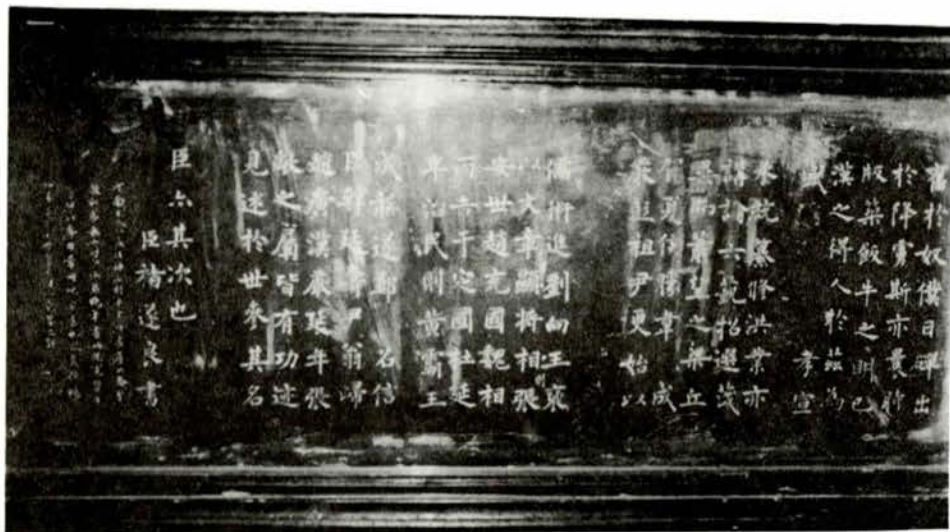 奮於奴僕日磾出
於降虜斯亦曩時
版築飯牛之明已
漢之得人於茲為
盛 孝宣
承統纂脩洪業亦
講論六藝招選茂
異而蕭望之梁丘
賀夏侯勝韋 成
嚴彭祖尹更始以
儒術進劉向王褒
以文章顯將相則張
安世趙充國魏相
丙吉于定國杜延
年治民則黃霸王
成龔遂鄭 召信
臣韓延壽尹翁歸
趙廣漢嚴延年張
敞之屬皆有功迹
見述於世參其名
臣亦其次也
臣褚遂良書